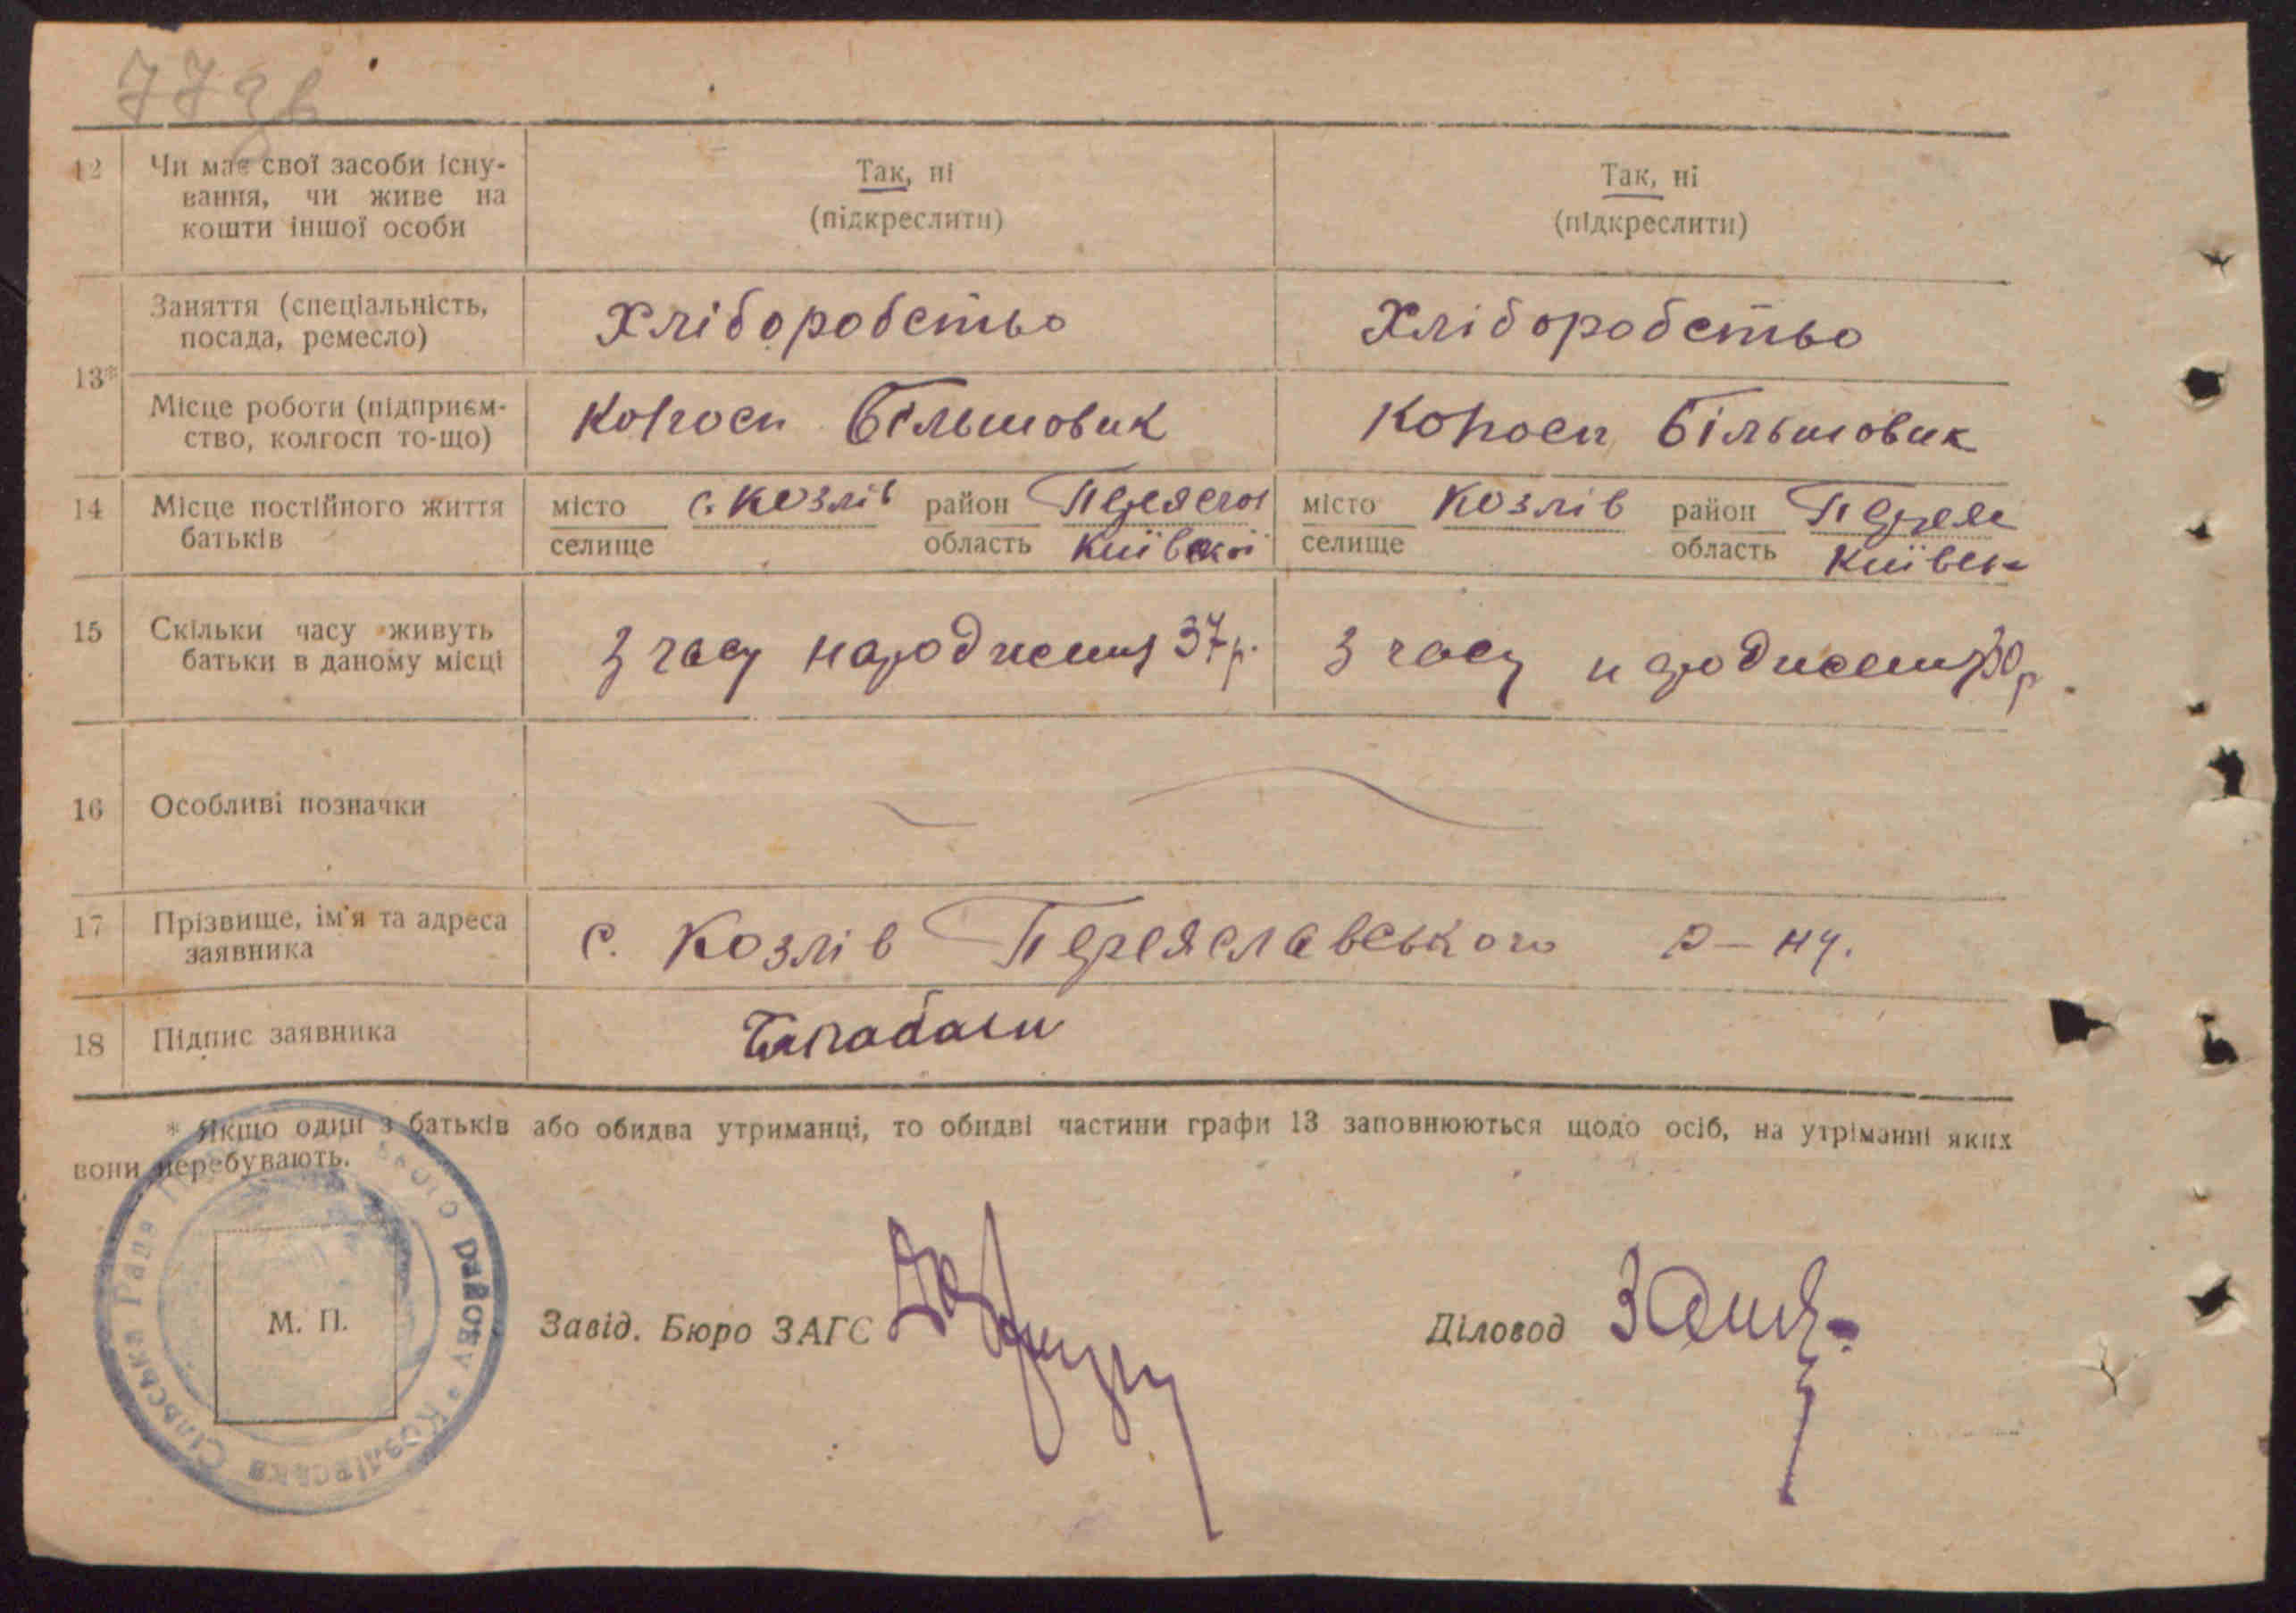 77 зв
12 Чи має свої засоби існу- Так, ні Так, ні
вання, чи живе на (підкреслити) (підкреслити)
кошти іншої особи
Заняття (спеціальність, Хліборобство Хліборобство
посада, ремесло)
13*
Місце роботи (підприєм- Колгосп Більшовик Колгосп Більшовик
ство, колгосп то-що)
14 Місце постійного життя місто с. Козлів район Переясл місто Козлів район Перея
батьків селище область Київської селище область Київськ
15 Скільки часу живуть З часу народження 37 р. З часу народження 30 р
батьки в даному місці
16 Особливі позначки
17 Прізвище, ім'я та адреса с. Козлів Переяславського р-ну.
заявника
18 Підпис заявника
* Якщо один з батьків або обидва утриманці, то обидві частини графи 13 заповнюються щодо осіб, на утріманні яких
вони перебувають.
Козлівська Сільська Рада району
М. П.
Завід. Бюро ЗАГС
Діловод